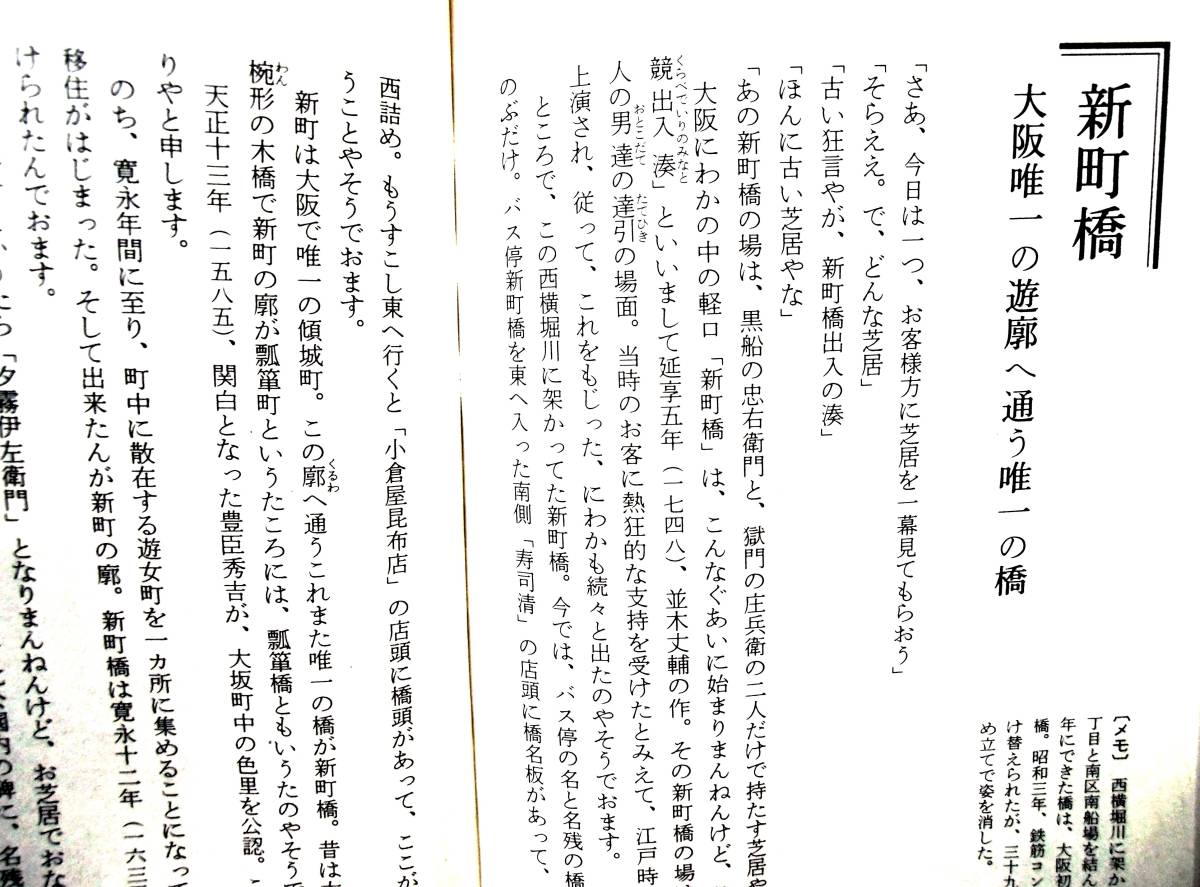 新町橋
大阪唯一の遊廓へ通う唯一の橋
〔メモ〕 西横堀川に架か
丁目と南区南船場を結ん
年にできた橋は、大阪初
橋。昭和三年、鉄筋コン
け替えられたが、三十九
め立てで姿を消した。
「さあ、今日は一つ、お客様方に芝居を一幕見てもらおう」
「そらええ。で、どんな芝居」
「古い狂言やが、新町橋出入の湊」
「ほんに古い芝居やな」
「あの新町橋の場は、黒船の忠右衛門と、獄門の庄兵衛の二人だけで持たす芝居や
大阪にわかの中の軽口「新町橋」は、こんなぐあいに始まりまんねんけど、
競出入湊」といいまして延享五年（一七四八）、並木丈輔の作。その新町橋の場
人の男達の達引の場面。当時のお客に熱狂的な支持を受けたとみえて、江戸時
上演され、従って、これをもじった、にわかも続々と出たのやそうでおます。
ところで、この西横堀川に架かってた新町橋。今では、バス停の名と名残の橋
のぶだけ。バス停新町橋を東へ入った南側「寿司清」の店頭に橋名板があって、
西詰め。もうすこし東へ行くと「小倉屋昆布店」の店頭に橋頭があって、ここが
うことやそうでおます。
新町は大阪で唯一の傾城町。この廓へ通うこれまた唯一の橋が新町橋。昔は
椀形の木橋で新町の廓が瓢箪町というたころには、瓢箪橋ともいうたのやそうで
天正十三年（一五八五）、関白となった豊臣秀吉が、大坂町中の色里を公認。
りやと申します。
のち、寛永年間に至り、町中に散在する遊女町を一カ所に集めることになって
移住がはじまった。そして出来たんが新町の廓。新町橋は寛永十二年（一六三
けられたんでおます。
「夕霧伊左衛門」となりまんねんけど、お芝居でおな
内の碑に、名残